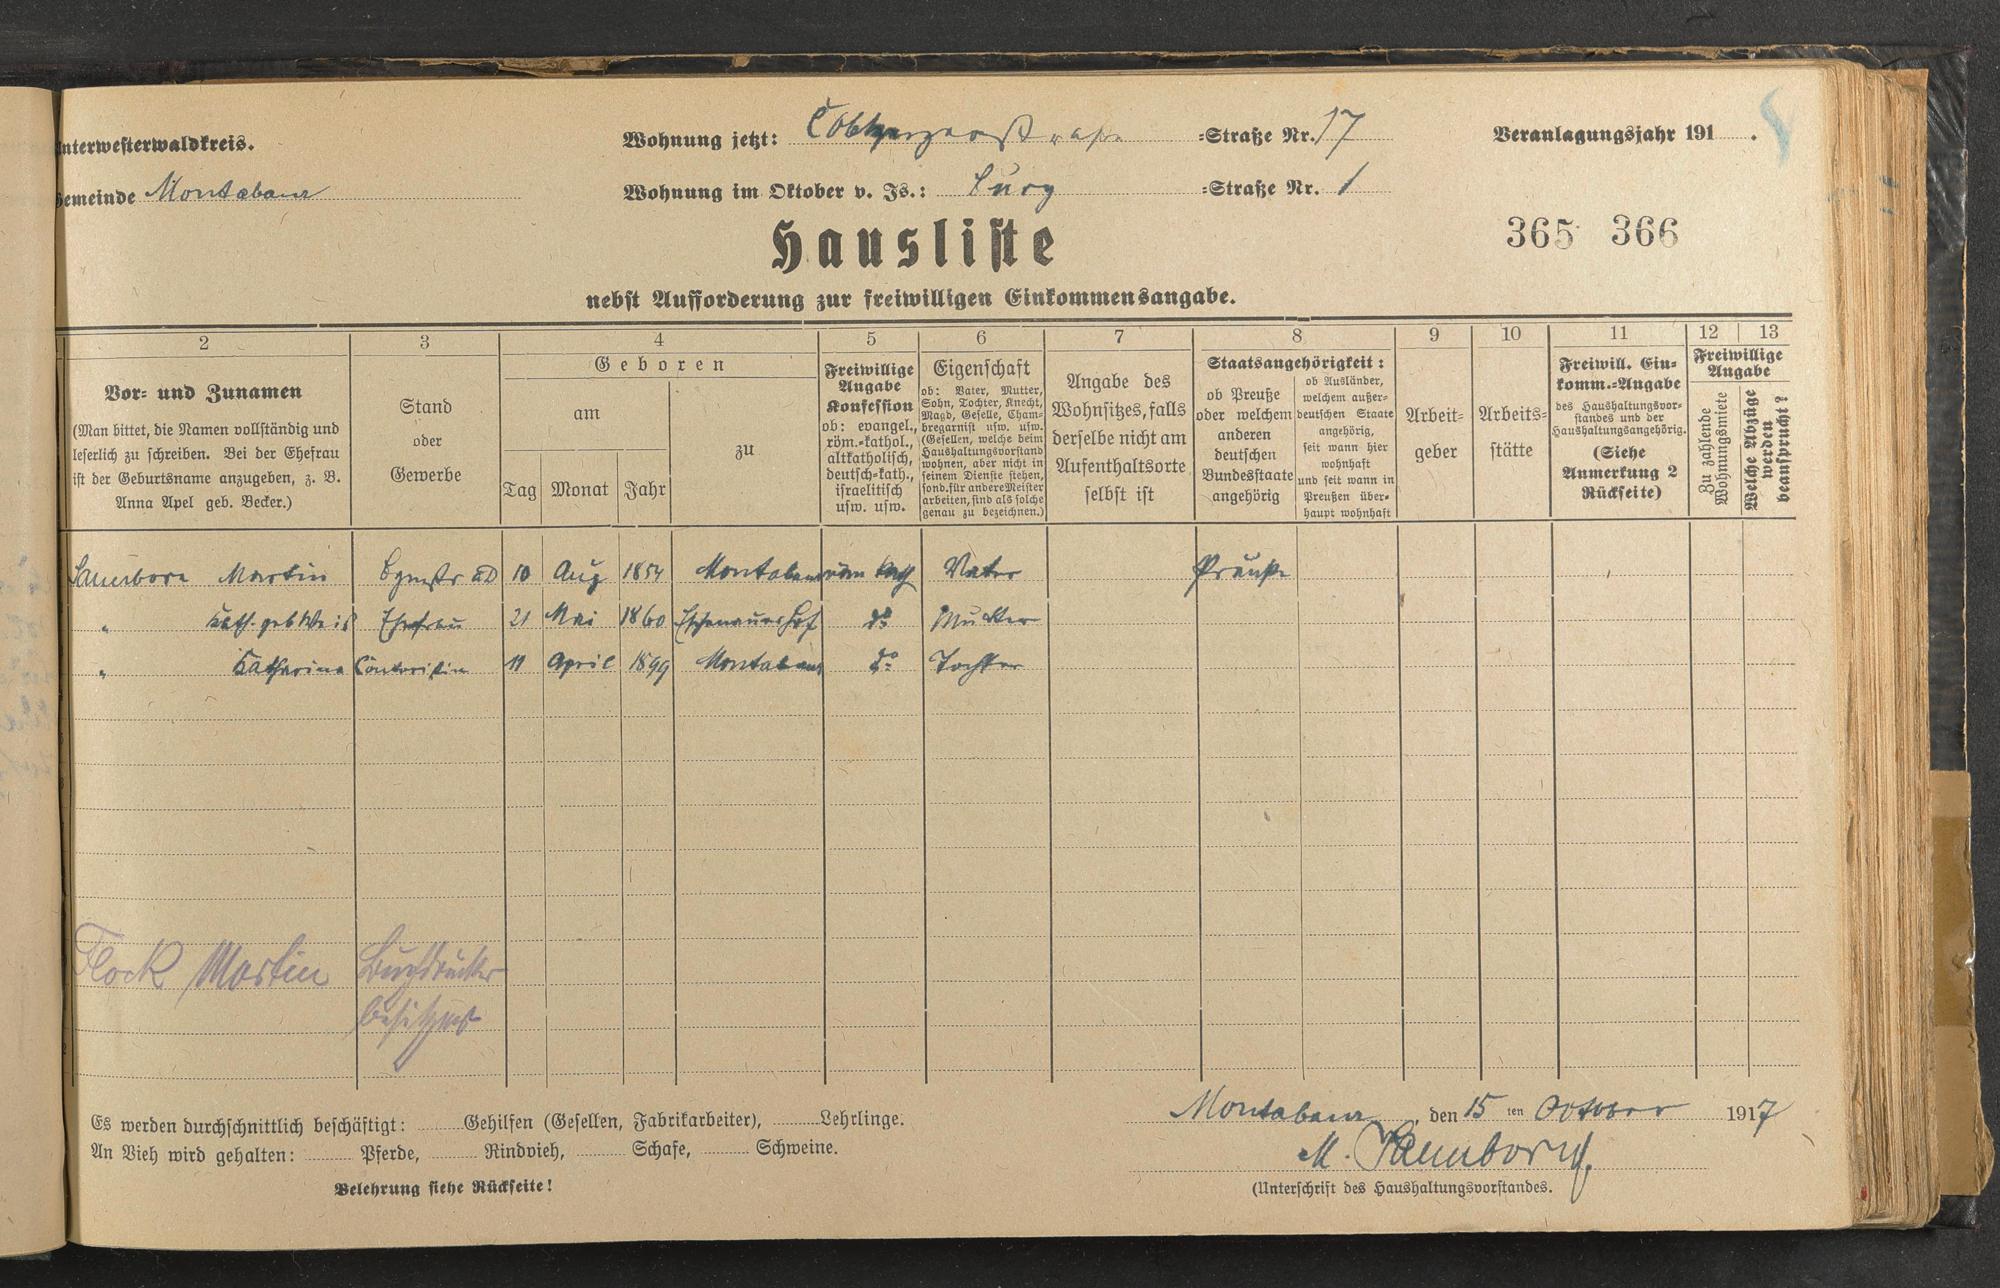 Unterwesterwaldkreis.
Wohnung jetzt: =Straße Nr. 17
Veranlagungsjahr 191 .
Gemeinde Montabaur
Wohnung im Oktober v. Js.: Burg =Straße Nr. 1
Hausliste
365 366
nebst Aufforderung zur freiwilligen Einkommensangabe.
2 3 4 5 6 7 8 9 10 11 12 13
Vor- und Zunamen
(Man bittet, die Namen vollständig und
leserlich zu schreiben. Bei der Ehefrau
ist der Geburtsname anzugeben, z. B.
Anna Apel geb. Becker.)
Stand
oder
Gewerbe
Geboren
am
Tag Monat Jahr
zu
Freiwillige
Angabe
Konfession
ob: evangel.,
röm.-kathol.,
altkatholisch,
deutsch-kath.,
israelitisch
usw. usw.
Eigenschaft
ob: Vater, Mutter,
Sohn, Tochter, Knecht,
Magd, Geselle, Cham-
bregarnist usw. usw.
(Gesellen, welche beim
Haushaltungsvorstand
wohnen, aber nicht in
seinem Dienste stehen,
sond. für andere Meister
arbeiten, sind als solche
genau zu bezeichnen.)
Angabe des
Wohnsitzes, falls
derselbe nicht am
Aufenthaltsorte
selbst ist
Staatsangehörigkeit:
ob Preuße
oder welchem
anderen
deutschen
Bundesstaate
angehörig
ob Ausländer,
welchem außer-
deutschen Staate
angehörig,
seit wann hier
wohnhaft
und seit wann in
Preußen über-
haupt wohnhaft
Arbeit-
geber
Arbeits-
stätte
Freiwill. Ein-
komm.-Angabe
des Haushaltungsvor-
standes und der
Haushaltungsangehörig.
(Siehe
Anmerkung 2
Rückseite)
Freiwillige
Angabe
Zu zahlende
Wohnungsmiete
Welche Abzüge
werden
beansprucht?
Sauerborn Martin Bgmstr aD 10 Aug 1854 Montabaur röm kath Vater Preuße
" Kath. geb Weis Ehefrau 21 Mai 1860 Eschenauerhof do Mutter
" Katharina Contoristin 11 April 1899 Montabaur do Tochter
Flock Martin Buchdruckerei
besitzer
Es werden durchschnittlich beschäftigt: Gehilfen (Gesellen, Fabrikarbeiter), Lehrlinge.
An Vieh wird gehalten: Pferde, Rindvieh, Schafe, Schweine.
Belehrung siehe Rückseite!
Montabaur, den 15 ten October 1917
M. Sauerborn
(Unterschrift des Haushaltungsvorstandes.